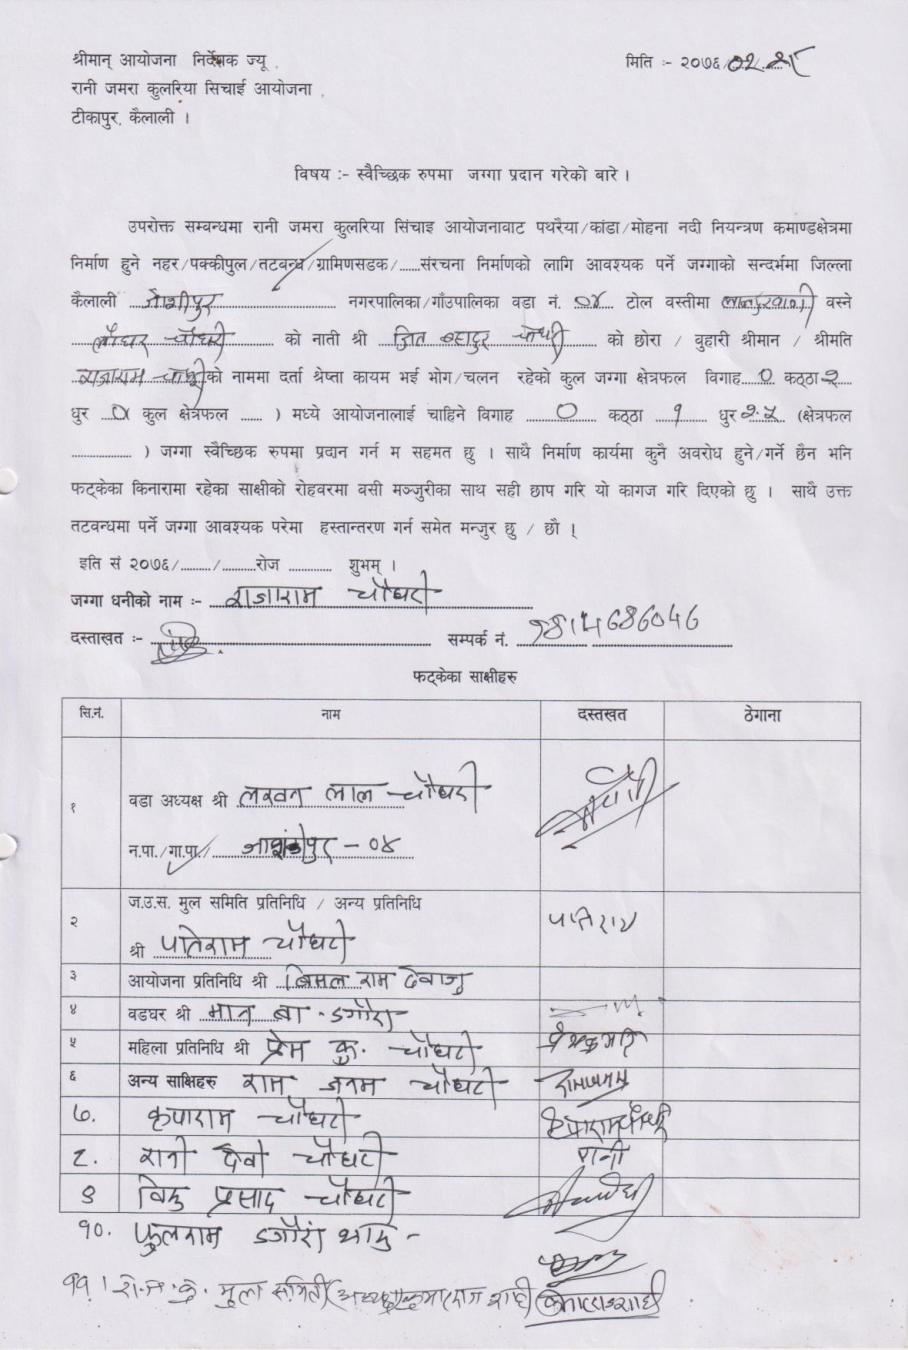 श्रीमान् आयोजना निर्देशक ज्यू
मिति :- २०७६/०२/
रानी जमरा कुलरिया सिचाई आयोजना
टीकापुर, कैलाली ।
विषय :- स्वैच्छिक रुपमा जग्गा प्रदान गरेको बारे ।
उपरोक्त सम्वन्धमा रानी जमरा कुलरिया सिंचाइ आयोजनावाट पथरैया/कांडा/मोहना नदी नियन्त्रण कमाण्डक्षेत्रमा
निर्माण हुने नहर/पक्कीपुल/तटबन्ध/ग्रामिणसडक/......संरचना निर्माणको लागि आवश्यक पर्ने जग्गाको सन्दर्भमा जिल्ला
कैलाली जोशीपुर नगरपालिका/गाँउपालिका वडा नं. ०४ टोल वस्तीमा वस्ने
चौधरी को नाती श्री जित बहादुर चौधरी को छोरा / वुहारी श्रीमान / श्रीमति
राजाराम चौधरी को नाममा दर्ता श्रेष्ता कायम भई भोग/चलन रहेको कुल जग्गा क्षेत्रफल विगाह ० कठ्ठा २
धुर ० कुल क्षेत्रफल ...... ) मध्ये आयोजनालाई चाहिने विगाह ० कठ्ठा १ धुर २.५ (क्षेत्रफल
.................. ) जग्गा स्वैच्छिक रुपमा प्रदान गर्न म सहमत छु । साथै निर्माण कार्यमा कुनै अवरोध हुने/गर्ने छैन भनि
फट्केका किनारामा रहेका साक्षीको रोहवरमा वसी मञ्जुरीका साथ सही छाप गरि यो कागज गरि दिएको छु । साथै उक्त
तटवन्धमा पर्ने जग्गा आवश्यक परेमा हस्तान्तरण गर्न समेत मन्जुर छु / छौ ।
इति सं २०७६/........./.........रोज ............ शुभम् ।
जग्गा धनीको नाम :- राजाराम चौधरी
दस्ताखत :- सम्पर्क नं. 9814686046
फट्केका साक्षीहरु
सि.नं. नाम दस्तखत ठेगाना
१ वडा अध्यक्ष श्री लखन लाल चौधरी
न.पा./गा.पा./ जोशीपुर - ०४
२ ज.उ.स. मुल समिति प्रतिनिधि / अन्य प्रतिनिधि
श्री पतिराम चौधरी पतिराम
३ आयोजना प्रतिनिधि श्री बिमल राम देवाजु
४ वडघर श्री मान ब. डगौरा
५ महिला प्रतिनिधि श्री प्रेम कु. चौधरी प्रेमकुमारी
६ अन्य साक्षिहरु राम जनम चौधरी रामजनम
७. कृपाराम चौधरी कृपाराम चौधरी
८. रानी देवी चौधरी रानी
९ प्रसाद चौधरी
१०. फुलराम डगौरा थारु -
११। रा.ज.कु. मुल समिति